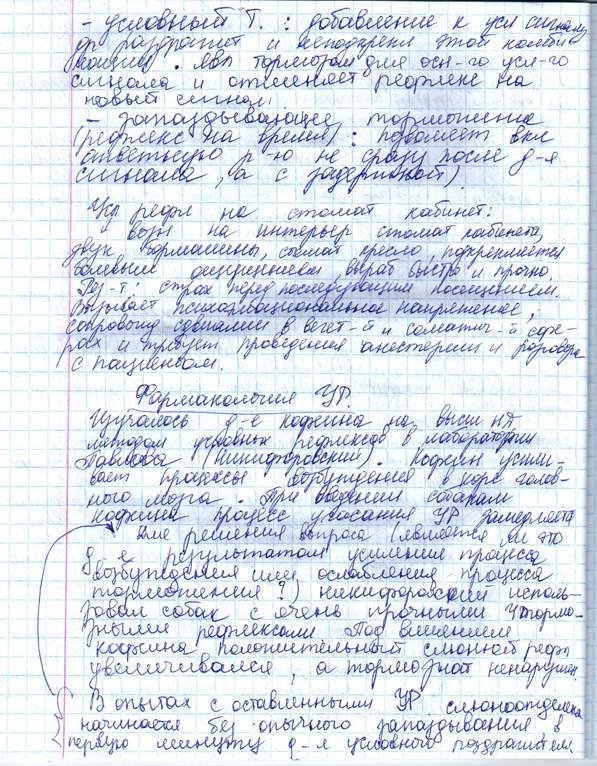 - условный Т. : добавление к усл сигналу
др раздражит и неподкрепл этой комби
нации. явл тормозом для осн-го усл-го
сигнала и отменяет рефлекс на
новый сигнал
- запаздывающее торможение
(рефлекс на время) : позволяет вкл
ответную р-ю не сразу после д-я
сигнала, а с задержкой)
Усл рефл на стомат кабинет:
возн на интерьер стомат кабинета,
звук бормашины, стомат кресло, подкрепляется
болевыми выраб быстро и прочно.
Рез-т: страх перед последующим посещением.
Вызывает психоэмоциональное напряжение,
сопровожд сдвигами в вегет-й и соматич-й сфе-
рах и требует проведения анестезии и разговора
с пациентом.
Фармакология УР.
Изучалось д-е кофеина на высш НД
методом условных рефлексов в лаборатории
Павлова (Никифоровский). Кофеин усили-
вает процессы возбуждения в коре голов-
ного мозга. При введении собакам
кофеина процесс угасания УР замедляется
Для решения вопроса (является ли это
д-е результатом усиления процесса
возбуждения или ослабления процесса
торможения?) Никифоровский исполь-
зовал собак с очень прочными тормо-
зными рефлексами Под влиянием
кофеина положительный слюнной рефл
увеличивался, а тормозной не
В опытах с оставленными УР слюноотделение
начинается без обычного запаздывания в
первую минуту д-я условного раздражителя